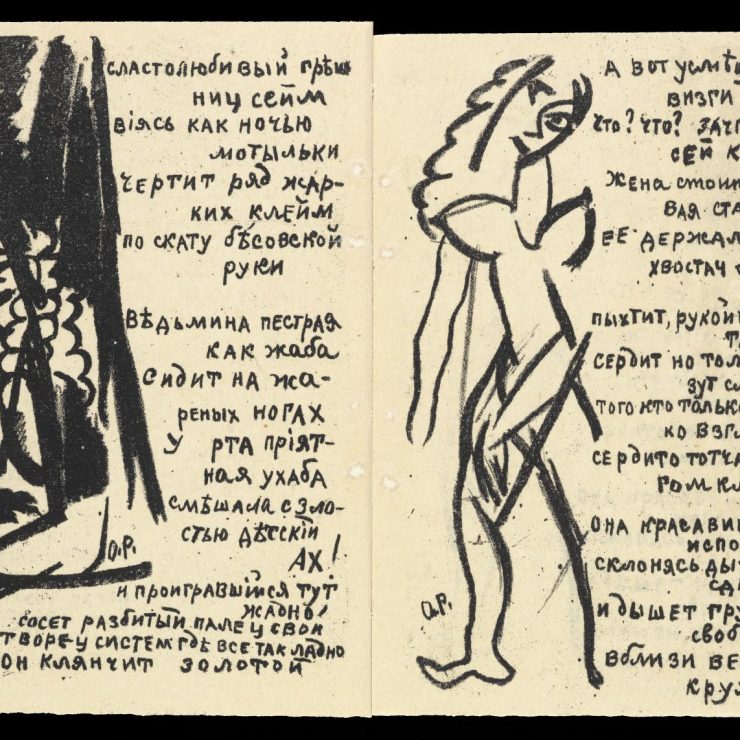 сластолюбивый грѣш
ниц сейм
віясь как ночью
мотыльки
чертит ряд жар-
ких клейм
по скату бѣсовской
руки
Вѣдьмина пестрая
как жаба
Сидит на жа-
реных ногах
У рта пріят-
ная ухаба
смѣшала с зло-
стью дѣтскій
АХ!
О.Р.
и проигравшійся тут
жадно
сосет разбитый палец свой
творец систем гдѣ все так ладно
он клянчит золотой
А вот усмѣ
визги
что? что? зач
сей к
жена стоит
вая ста
ЕЕ держал
хвостач
пыхтит, рукой
т
сердит но тол
зут сл
того кто только
ко взгл
сердито тотча
гом кл
О.Р.
она красави
испо
склонясь ды
сд
и дышет гру
своб
вблизи ве
круж